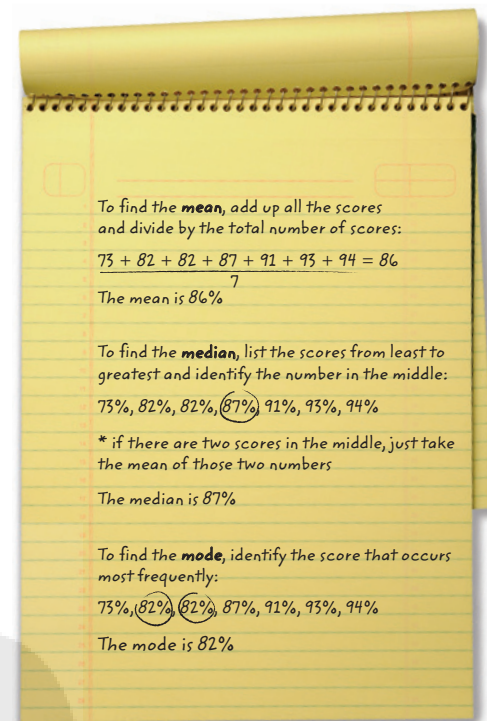 To find the mean, add up all the scores
and divide by the total number of scores:
73 + 82 + 82 + 87 + 91 + 93 + 94 = 86
7
The mean is 86%
To find the median, list the scores from least to
greatest and identify the number in the middle:
73%, 82%, 82%, 87%, 91%, 93%, 94%
* if there are two scores in the middle, just take
the mean of those two numbers
The median is 87%
To find the mode, identify the score that occurs
most frequently:
73%, 82%, 82%, 87%, 91%, 93%, 94%
The mode is 82%